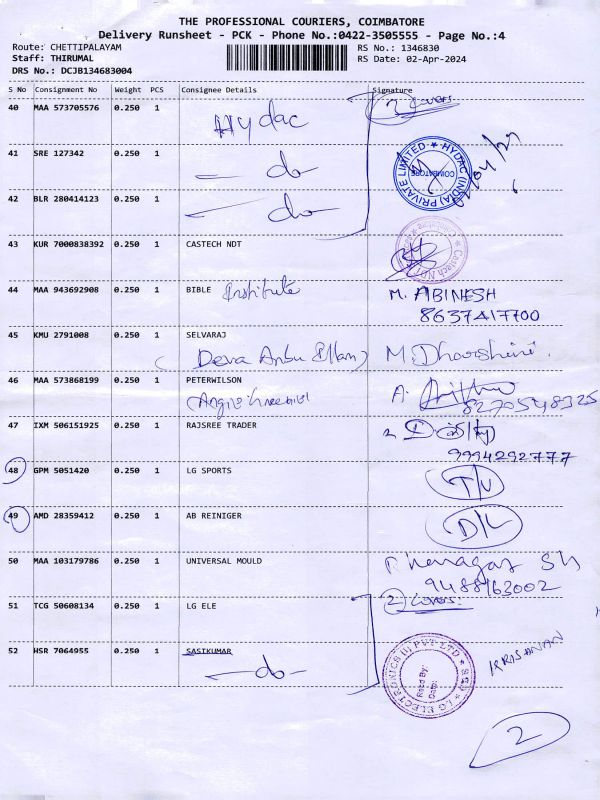 THE PROFESSIONAL COURIERS, COIMBATORE
Delivery Runsheet - PCK - Phone No.:0422-3505555 - Page No.:4
Route: CHETTIPALAYAM
RS No.: 1346830
Staff: THIRUMAL
RS Date: 02-Apr-2024
DRS No.: DCJB134683004
S No Consignment No Weight PCS Consignee Details Signature
40 MAA 573705576 0.250 1 Hydac 2 Covers
41 SRE 127342 0.250 1 do
HYDAC (INDIA) PRIVATE LIMITED
COIMBATORE
42 BLR 280414123 0.250 1 do
43 KUR 7000838392 0.250 1 CASTECH NDT
Castech NDT
44 MAA 943692908 0.250 1 BIBLE Institute M. ABINESH
8637417700
45 KMU 2791008 0.250 1 SELVARAJ
Deva Anbu Illam M. Dharshini.
46 MAA 573868199 0.250 1 PETERWILSON A.
8270548325
47 IXM 506151925 0.250 1 RAJSREE TRADER
9994292777
48 GPM 5051420 0.250 1 LG SPORTS
49 AMD 28359412 0.250 1 AB REINIGER D/L
50 MAA 103179786 0.250 1 UNIVERSAL MOULD
9488163002
51 TCG 50608134 0.250 1 LG ELE 2 Covers:
52 HSR 7064955 0.250 1 SASIKUMAR
do
LG ELECTRONICS (I) PVT LTD
Recd By:
Date:
KRISHNAN
2